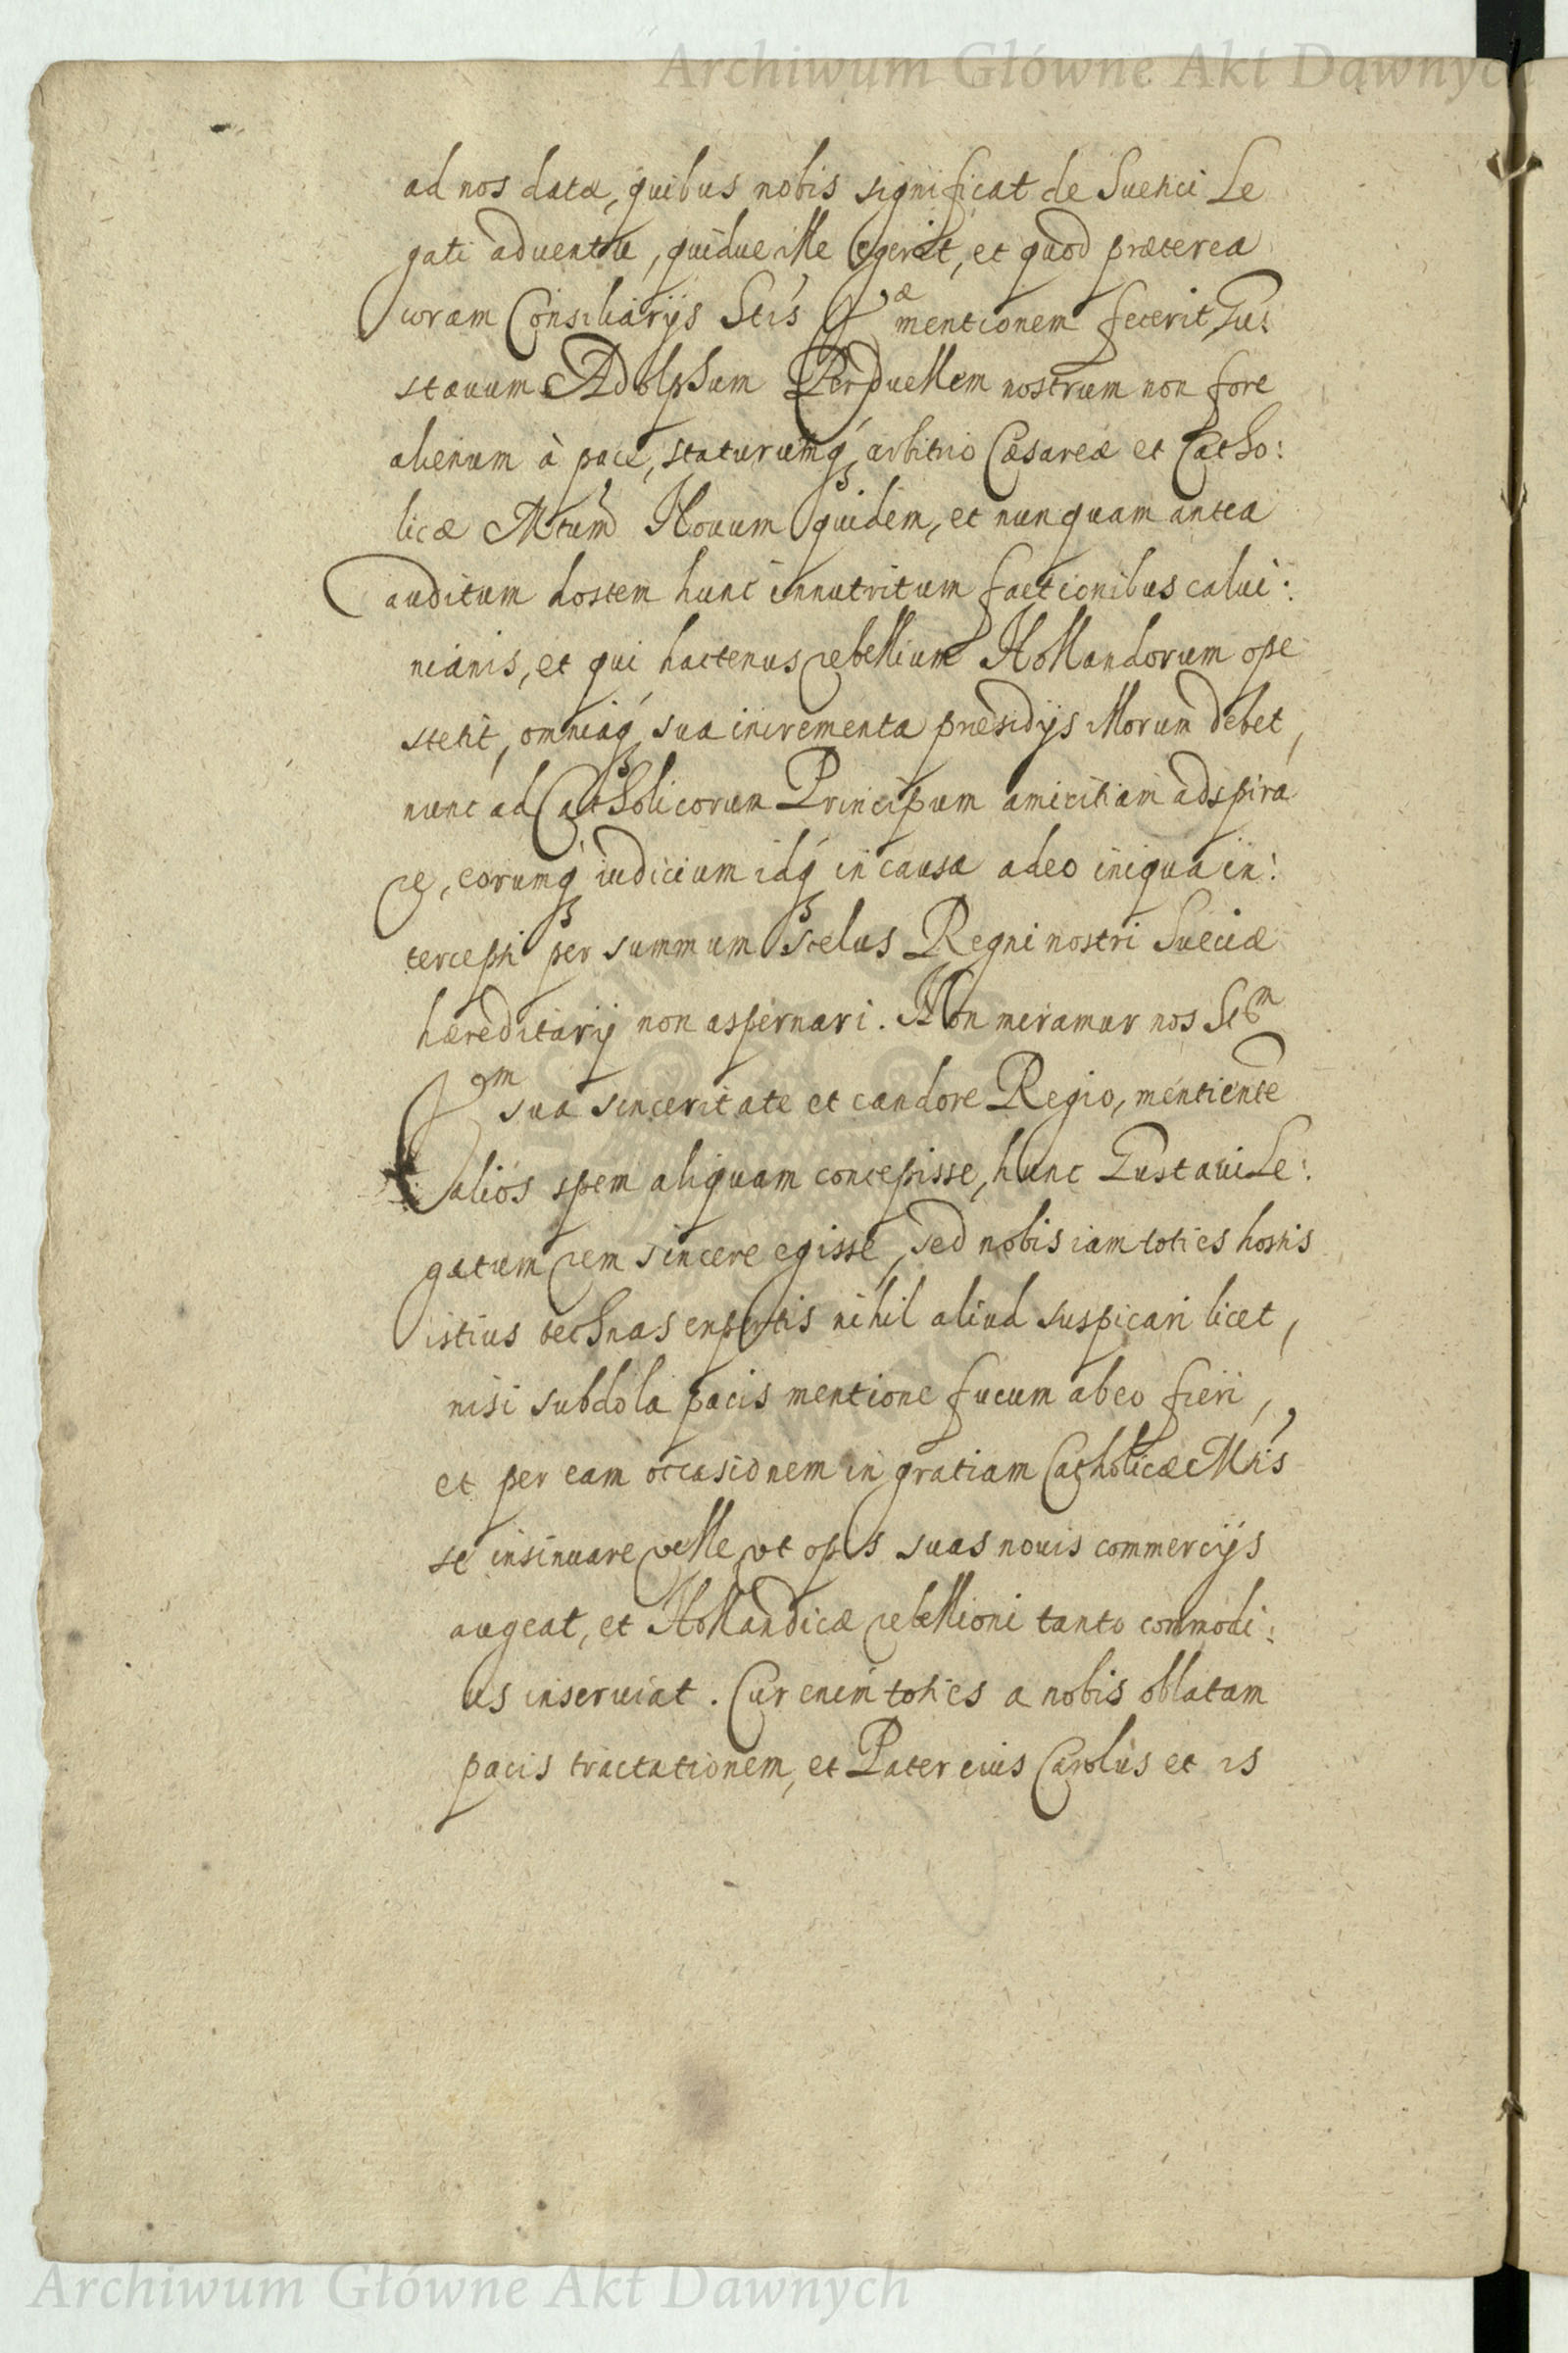 Archiwum Główne Akt Dawnych
ad nos datæ, quibus nobis significat de Suetici Le
gati aduentu, quidue ille egerit, et quod præterea
coram Consiliarijs Stis V ræ mentionem fecerit Gu:
stauum Adolphum Perduellem nostrum non fore
alienum à pace, staturumq₃ arbitrio Cæsareæ et Catho:
licæ Mtum Nouum quidem, et nunquam antea
auditum hostem hunc innutritum factionibus calui:
nianis, et qui hactenus rebellium Hollandorum ope
stetit, omniaq₃ sua incrementa præsidijs illorum debet,
nunc ad Catholicorum Principum amicitiam adspira
re, eorumq₃ iudicium idq₃ in causa adeo iniqua in:
tercepti per summum scelus Regni nostri Sueciæ
hæreditarij non aspernari. Non miramur nos Stem
V ram sua sinceritate et candore Regio, mentiente
alios spem aliquam concepisse, hunc Gustaui Le:
gatum rem sincere egisse, sed nobis iam toties hostis
istius technas expertis nihil aliud suspicari licet,
nisi subdola pacis mentione fucum ab eo fieri,
et per eam occasionem in gratiam Catholicæ Mtis
se insinuare velle vt opes suas nouis commercijs
augeat, et Hollandicæ rebellioni tanto commodi:
us inseruiat. Cur enim toties a nobis oblatam
pacis tractationem, et Pater eius Carolus et is
Archiwum Główne Akt Dawnych